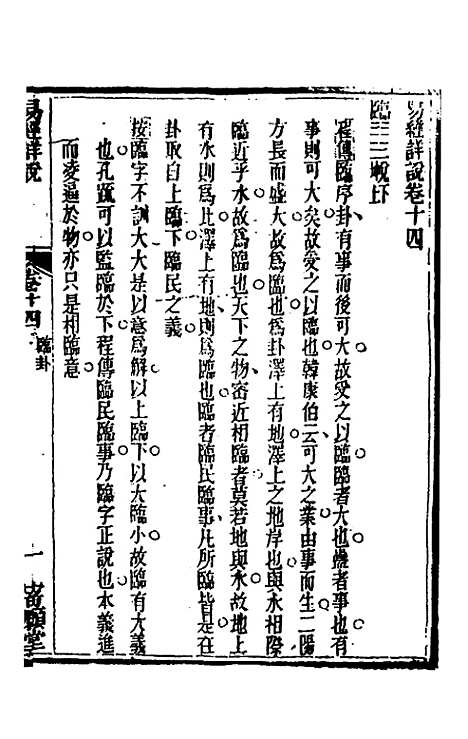 易經詳說卷十四
臨☱☷兌下
程傳臨序卦有事而後可大故受之以臨臨者大也蠱者事也有
事則可大矣故受之以臨也韓康伯云可大之業由事而生二陽
方長而盛大故爲臨也爲卦澤上有地澤上之地岸也與水相際
臨近乎水故爲臨也天下之物密近相臨者莫若地與水故地上
有水則爲比澤上有地則爲臨也臨者臨民臨事凡所臨皆是在
卦取自上臨下臨民之義
按臨字不訓大大是以意爲解以上臨下以大臨小故臨有大義
也孔疏可以監臨於下程傳臨民臨事乃臨字正說也本義進
而凌逼於物亦只是相臨意
易經詳說 卷十四 臨卦 一 寄願堂